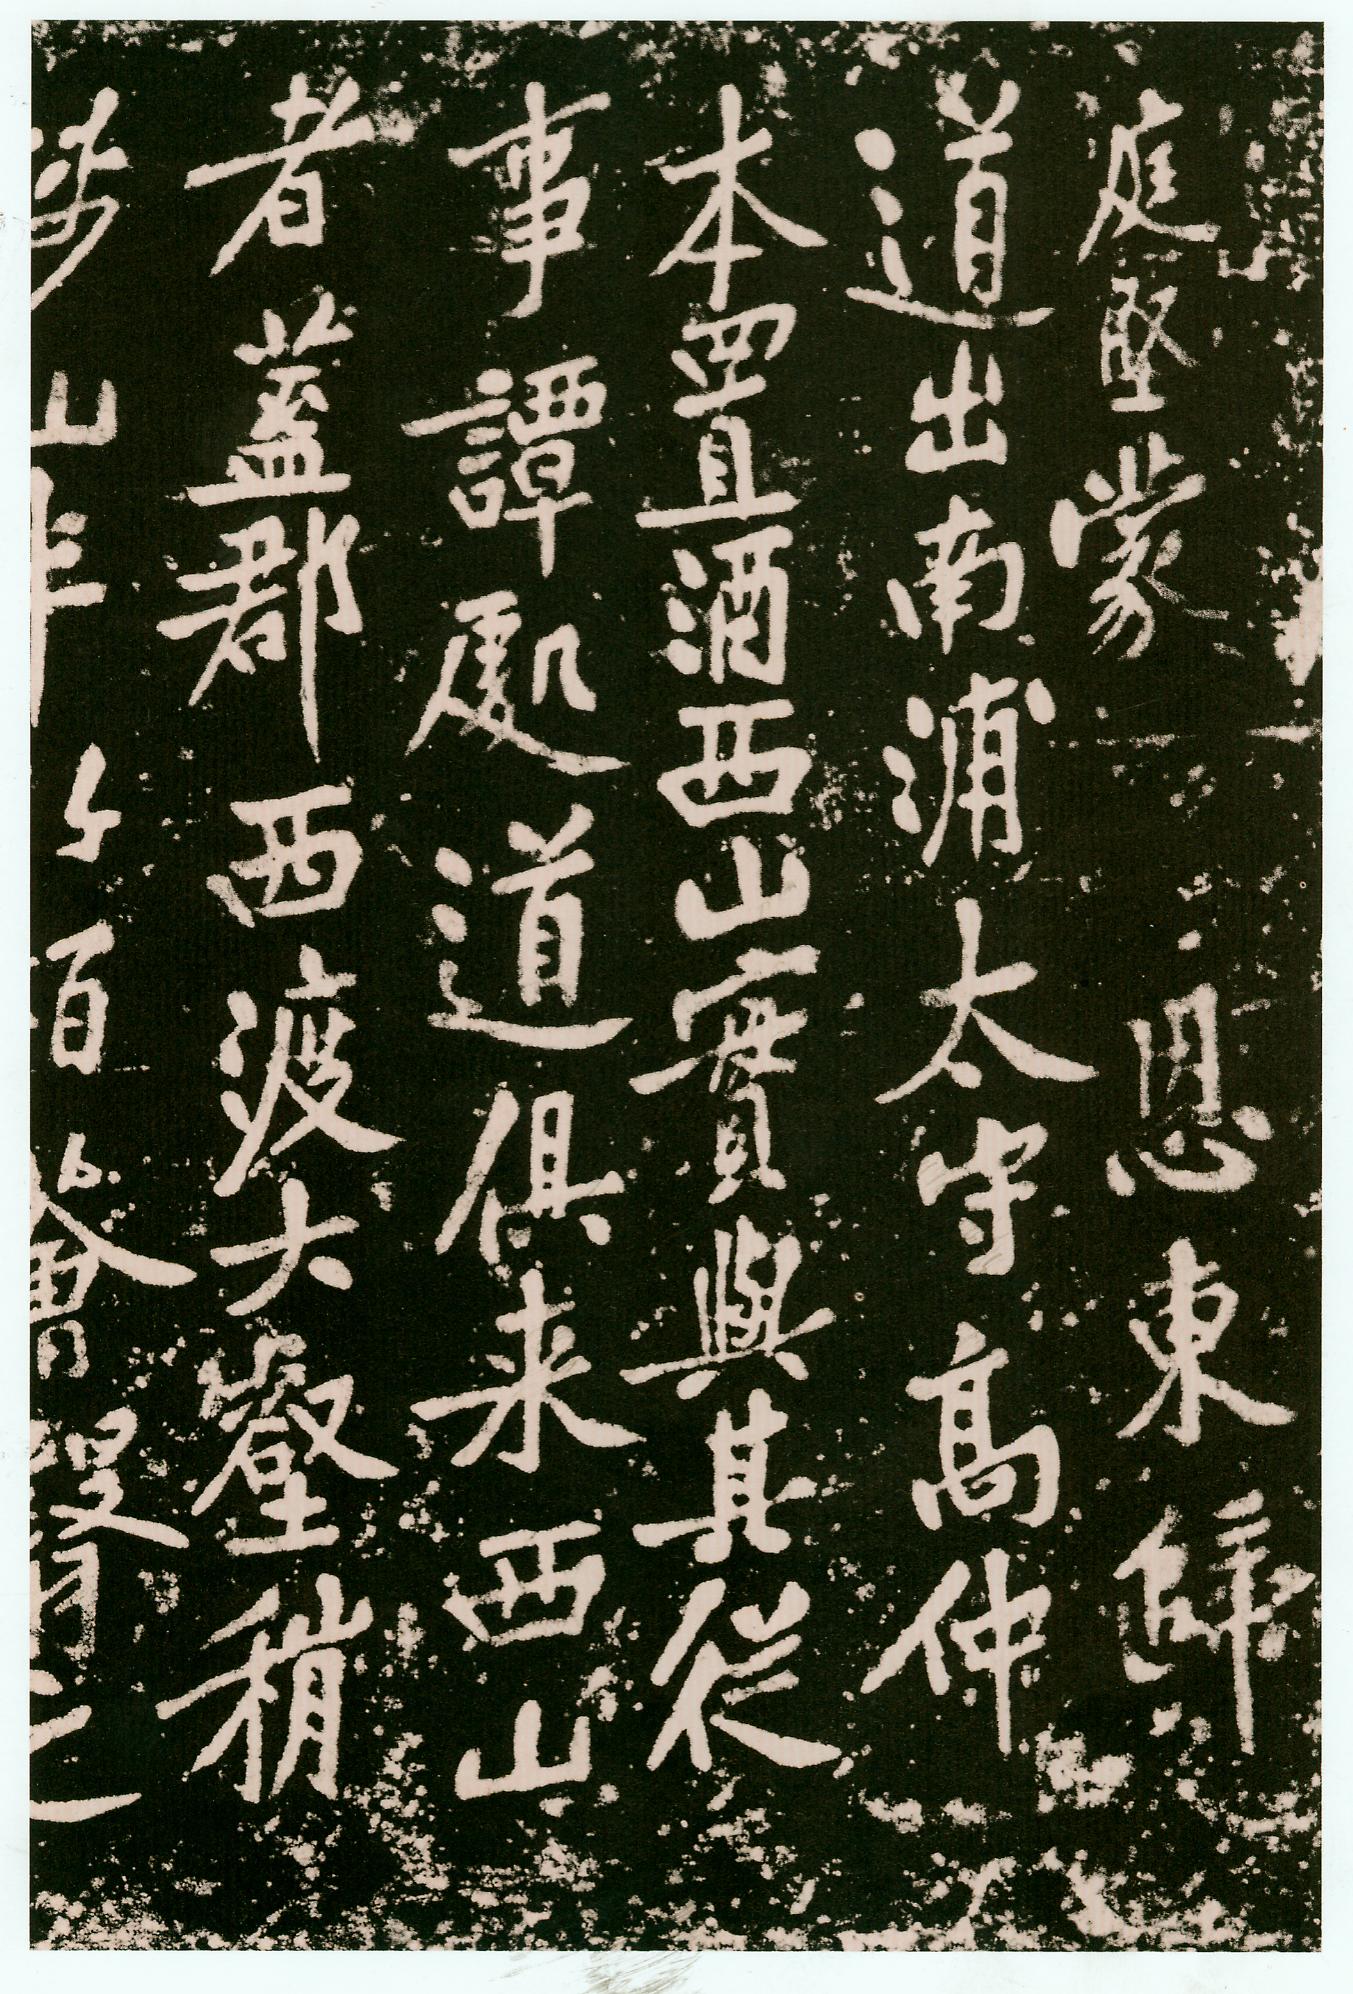 庭堅蒙 恩東歸
道出南浦太守高仲
本置酒西山實與其從
事譚處道俱来西山
者蓋郡西渡大壑稍
陟山半竹柏